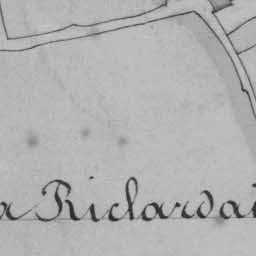 a Riclardai